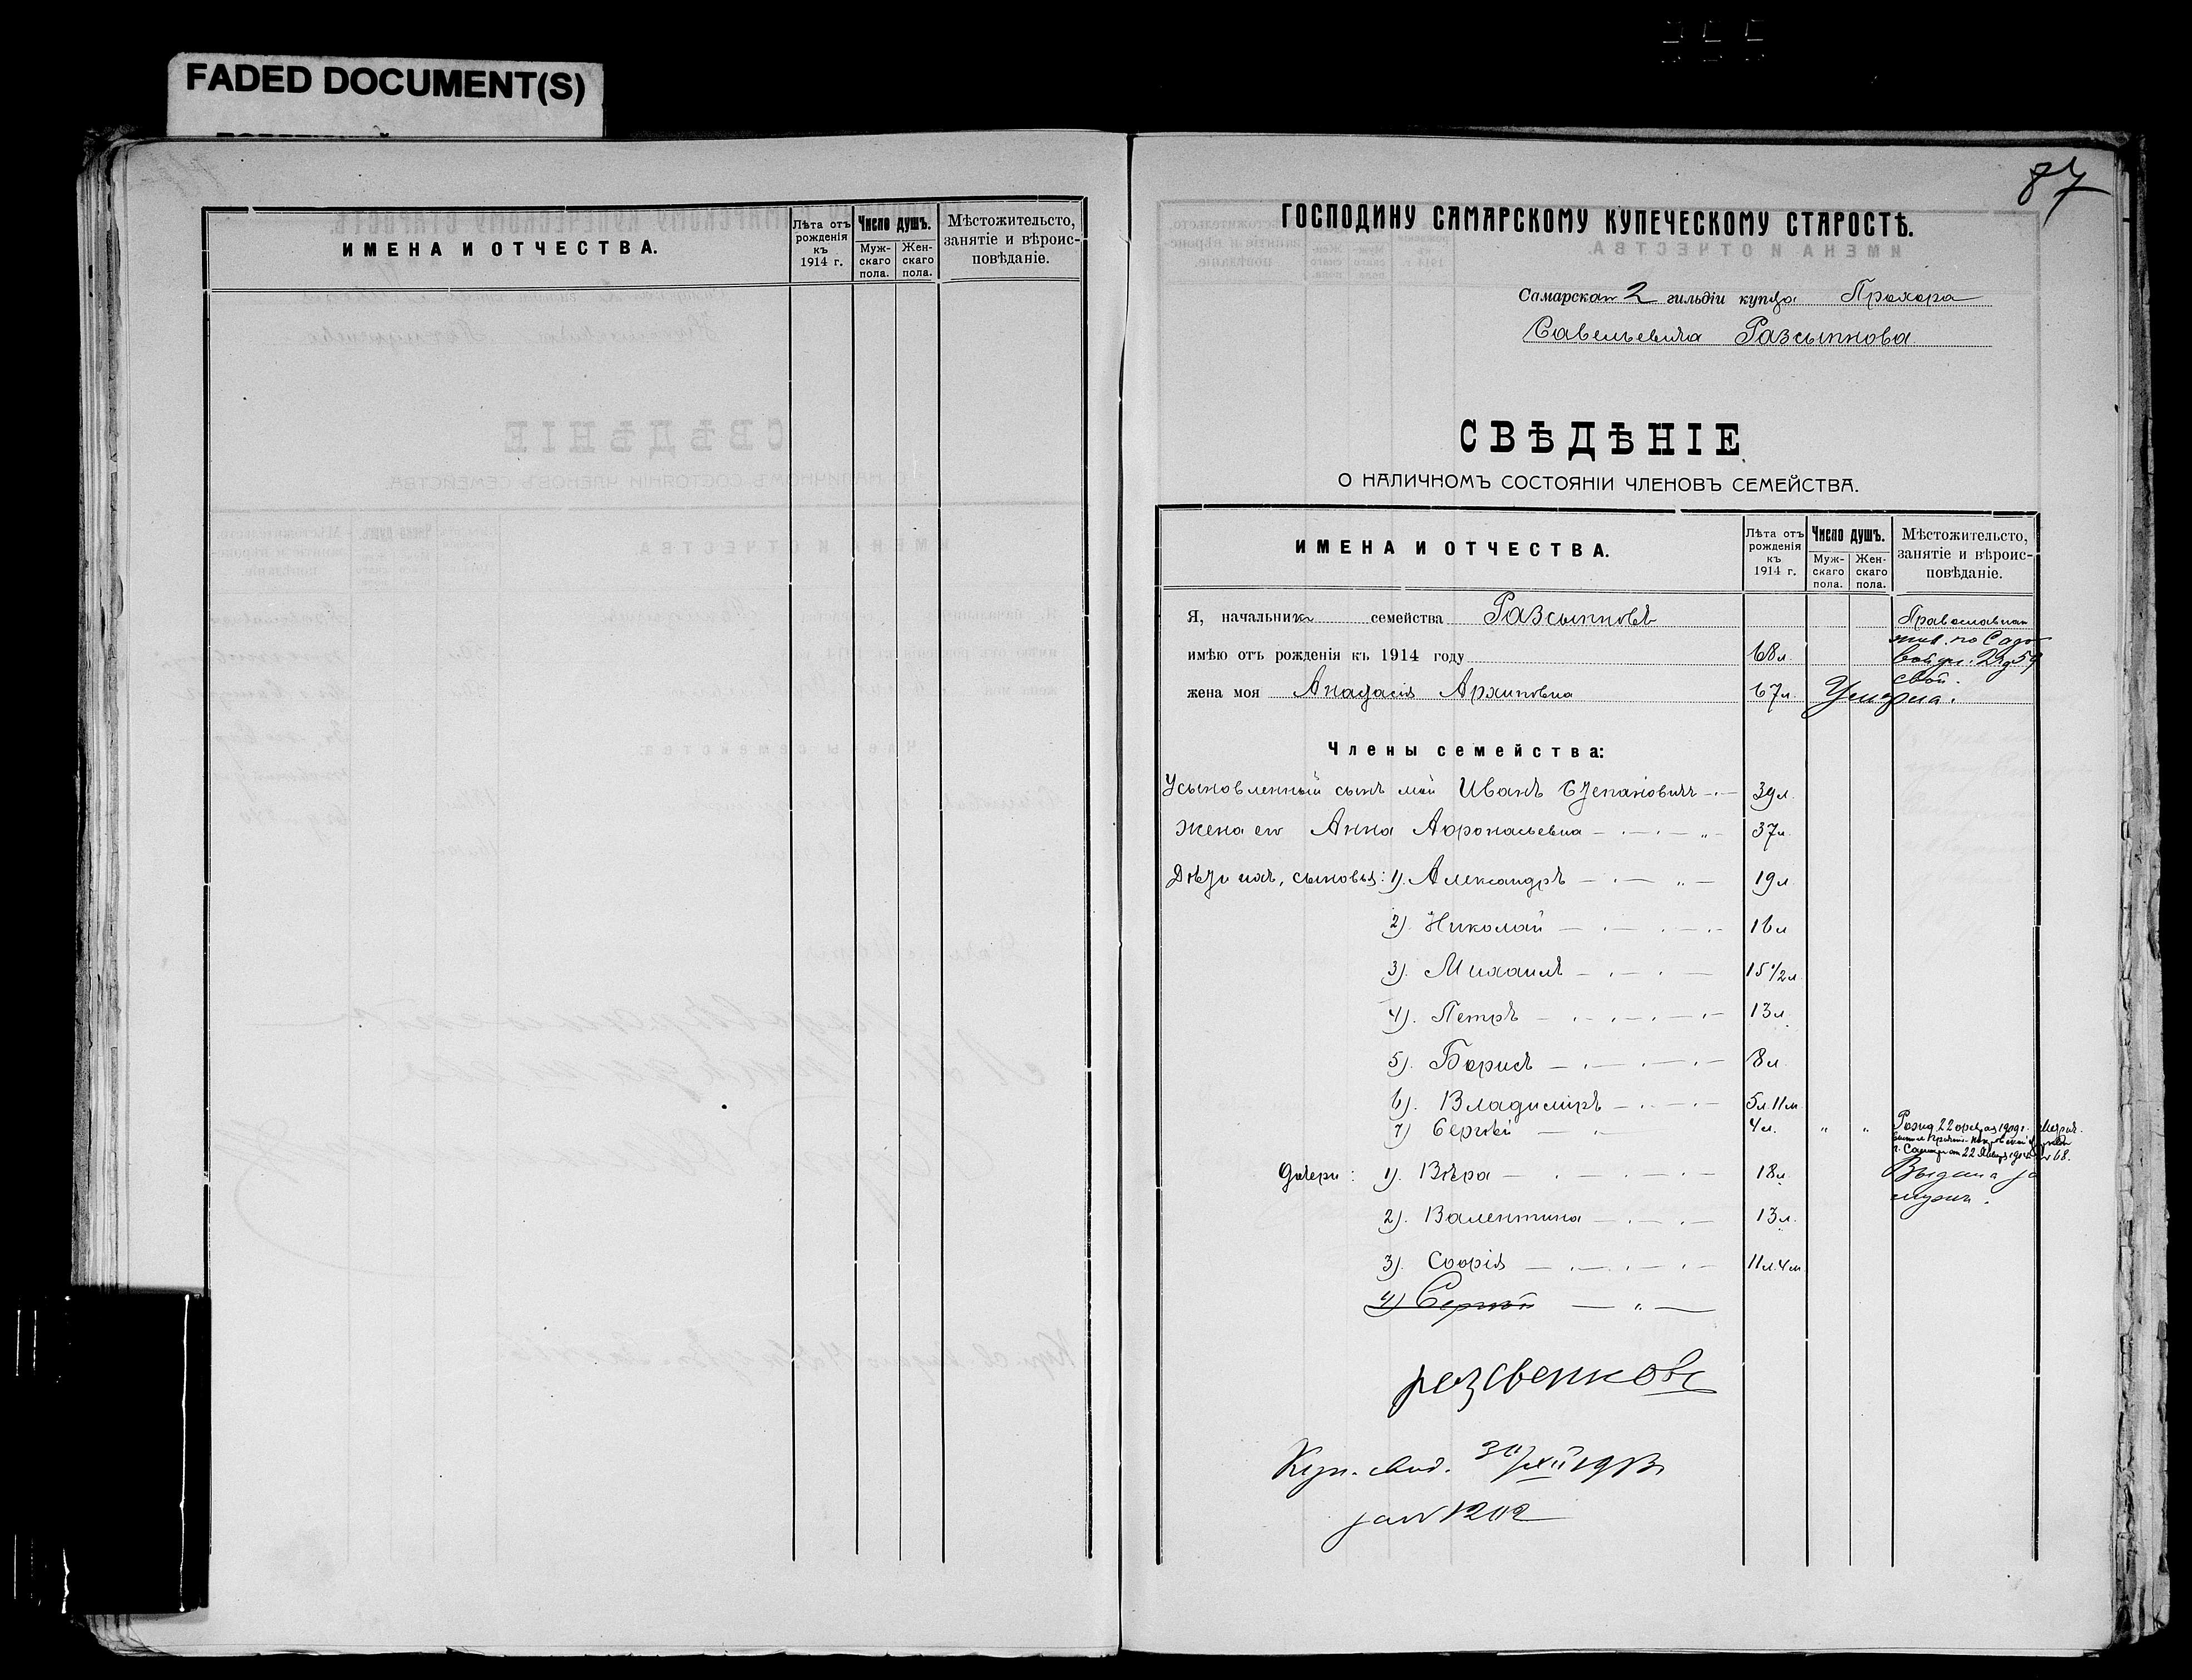 FADED DOCUMENT(S)
ИМЕНА И ОТЧЕСТВА.
Лѣта отъ рожденія къ 1914 г.
Число душъ.
Муж-скаго пола.
Жен-скаго пола.
Мѣстожительсто, занятіе и вѣроис-повѣданіе.
87
ГОСПОДИНУ САМАРСКОМУ КУПЕЧЕСКОМУ СТАРОСТѢ.
Самарскаго 2 гильдіи купца Прохора
Савельевича Разсыпнова
СВѢДѢНІЕ
О НАЛИЧНОМЪ СОСТОЯНІИ ЧЛЕНОВЪ СЕМЕЙСТВА.
ИМЕНА И ОТЧЕСТВА.
Лѣта отъ рожденія къ 1914 г.
Число душъ.
Муж-скаго пола.
Жен-скаго пола.
Мѣстожительсто, занятіе и вѣроис-повѣданіе.
Я, начальникъ семейства Разсыпновъ Православнаго
имѣю отъ рожденія къ 1914 году 68 л. жив. по Садо-
вой ул.
свой.
жена моя Анастасія Архиповна 67 л. Умерла.
Члены семейства:
Усыновленный сынъ мой Иванъ Степановичъ 39 л.
Жена его Анна Афонасьевна 37 л.
Дѣти ихъ, сыновья: 1). Александръ 19 л.
2). Николай 16 л.
3). Михаилъ 15 1/2 л.
4). Петръ 13 л.
5). Борисъ 8 л.
6). Владиміръ 5 л. 11 м.
7) Сергѣй 4 л. " " Рожд. 22 1909 г. Метрич.
г. Самары от 22 Января 1914 г. № 68.
Дочери: 1). Вѣра 18 л. Выдана за
мужъ.
2). Валентина 13 л.
3). Софія 11 л. 4 м.
4) Сергѣй
Куп. свид. 30/XII 1913
за № 1202